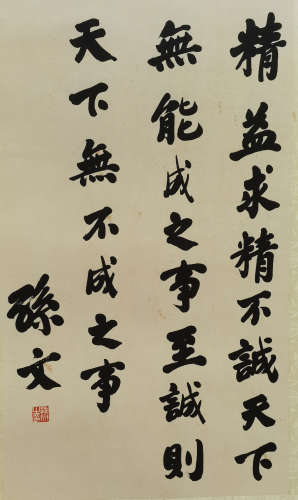 精益求精不誠天下
無能成之事至誠則
天下無不成之事
孫文